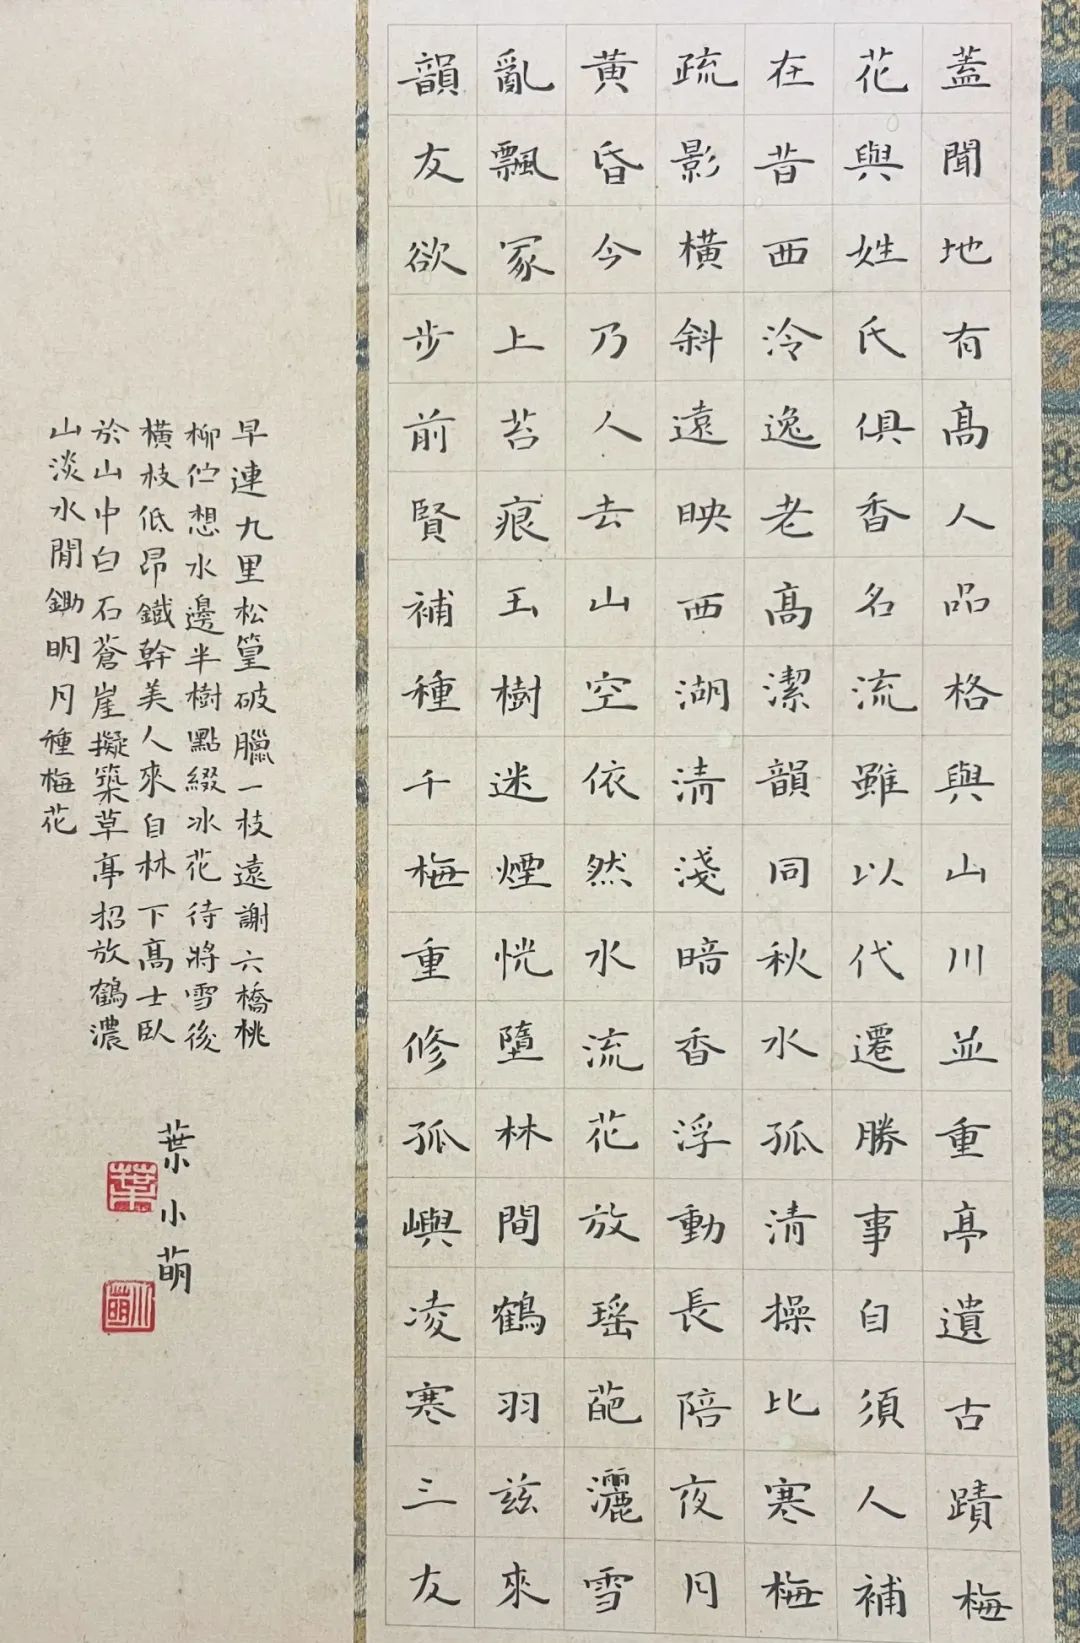 蓋聞地有高人品格與山川並重亭遺古蹟梅
花與姓氏俱香名流雖以代遷勝事自須人補
在昔西泠逸老高潔韻同秋水孤清操比寒梅
疏影橫斜遠映西湖清淺暗香浮動長陪夜月
黃昏今乃人去山空依然水流花放瑶葩灑雪
亂飄冢上苔痕玉樹迷煙恍墮林間鶴羽茲來
韻友欲步前賢補種千梅重修孤嶼凌寒三友
早連九里松篁破臘一枝遠謝六橋桃
柳佇想水邊半樹點綴冰花待將雪後
橫枝低昂鐵幹美人來自林下高士臥
於山中白石蒼崖擬築草亭招放鶴濃
山淡水閒鋤明月種梅花
葉小萌
葉
小萌